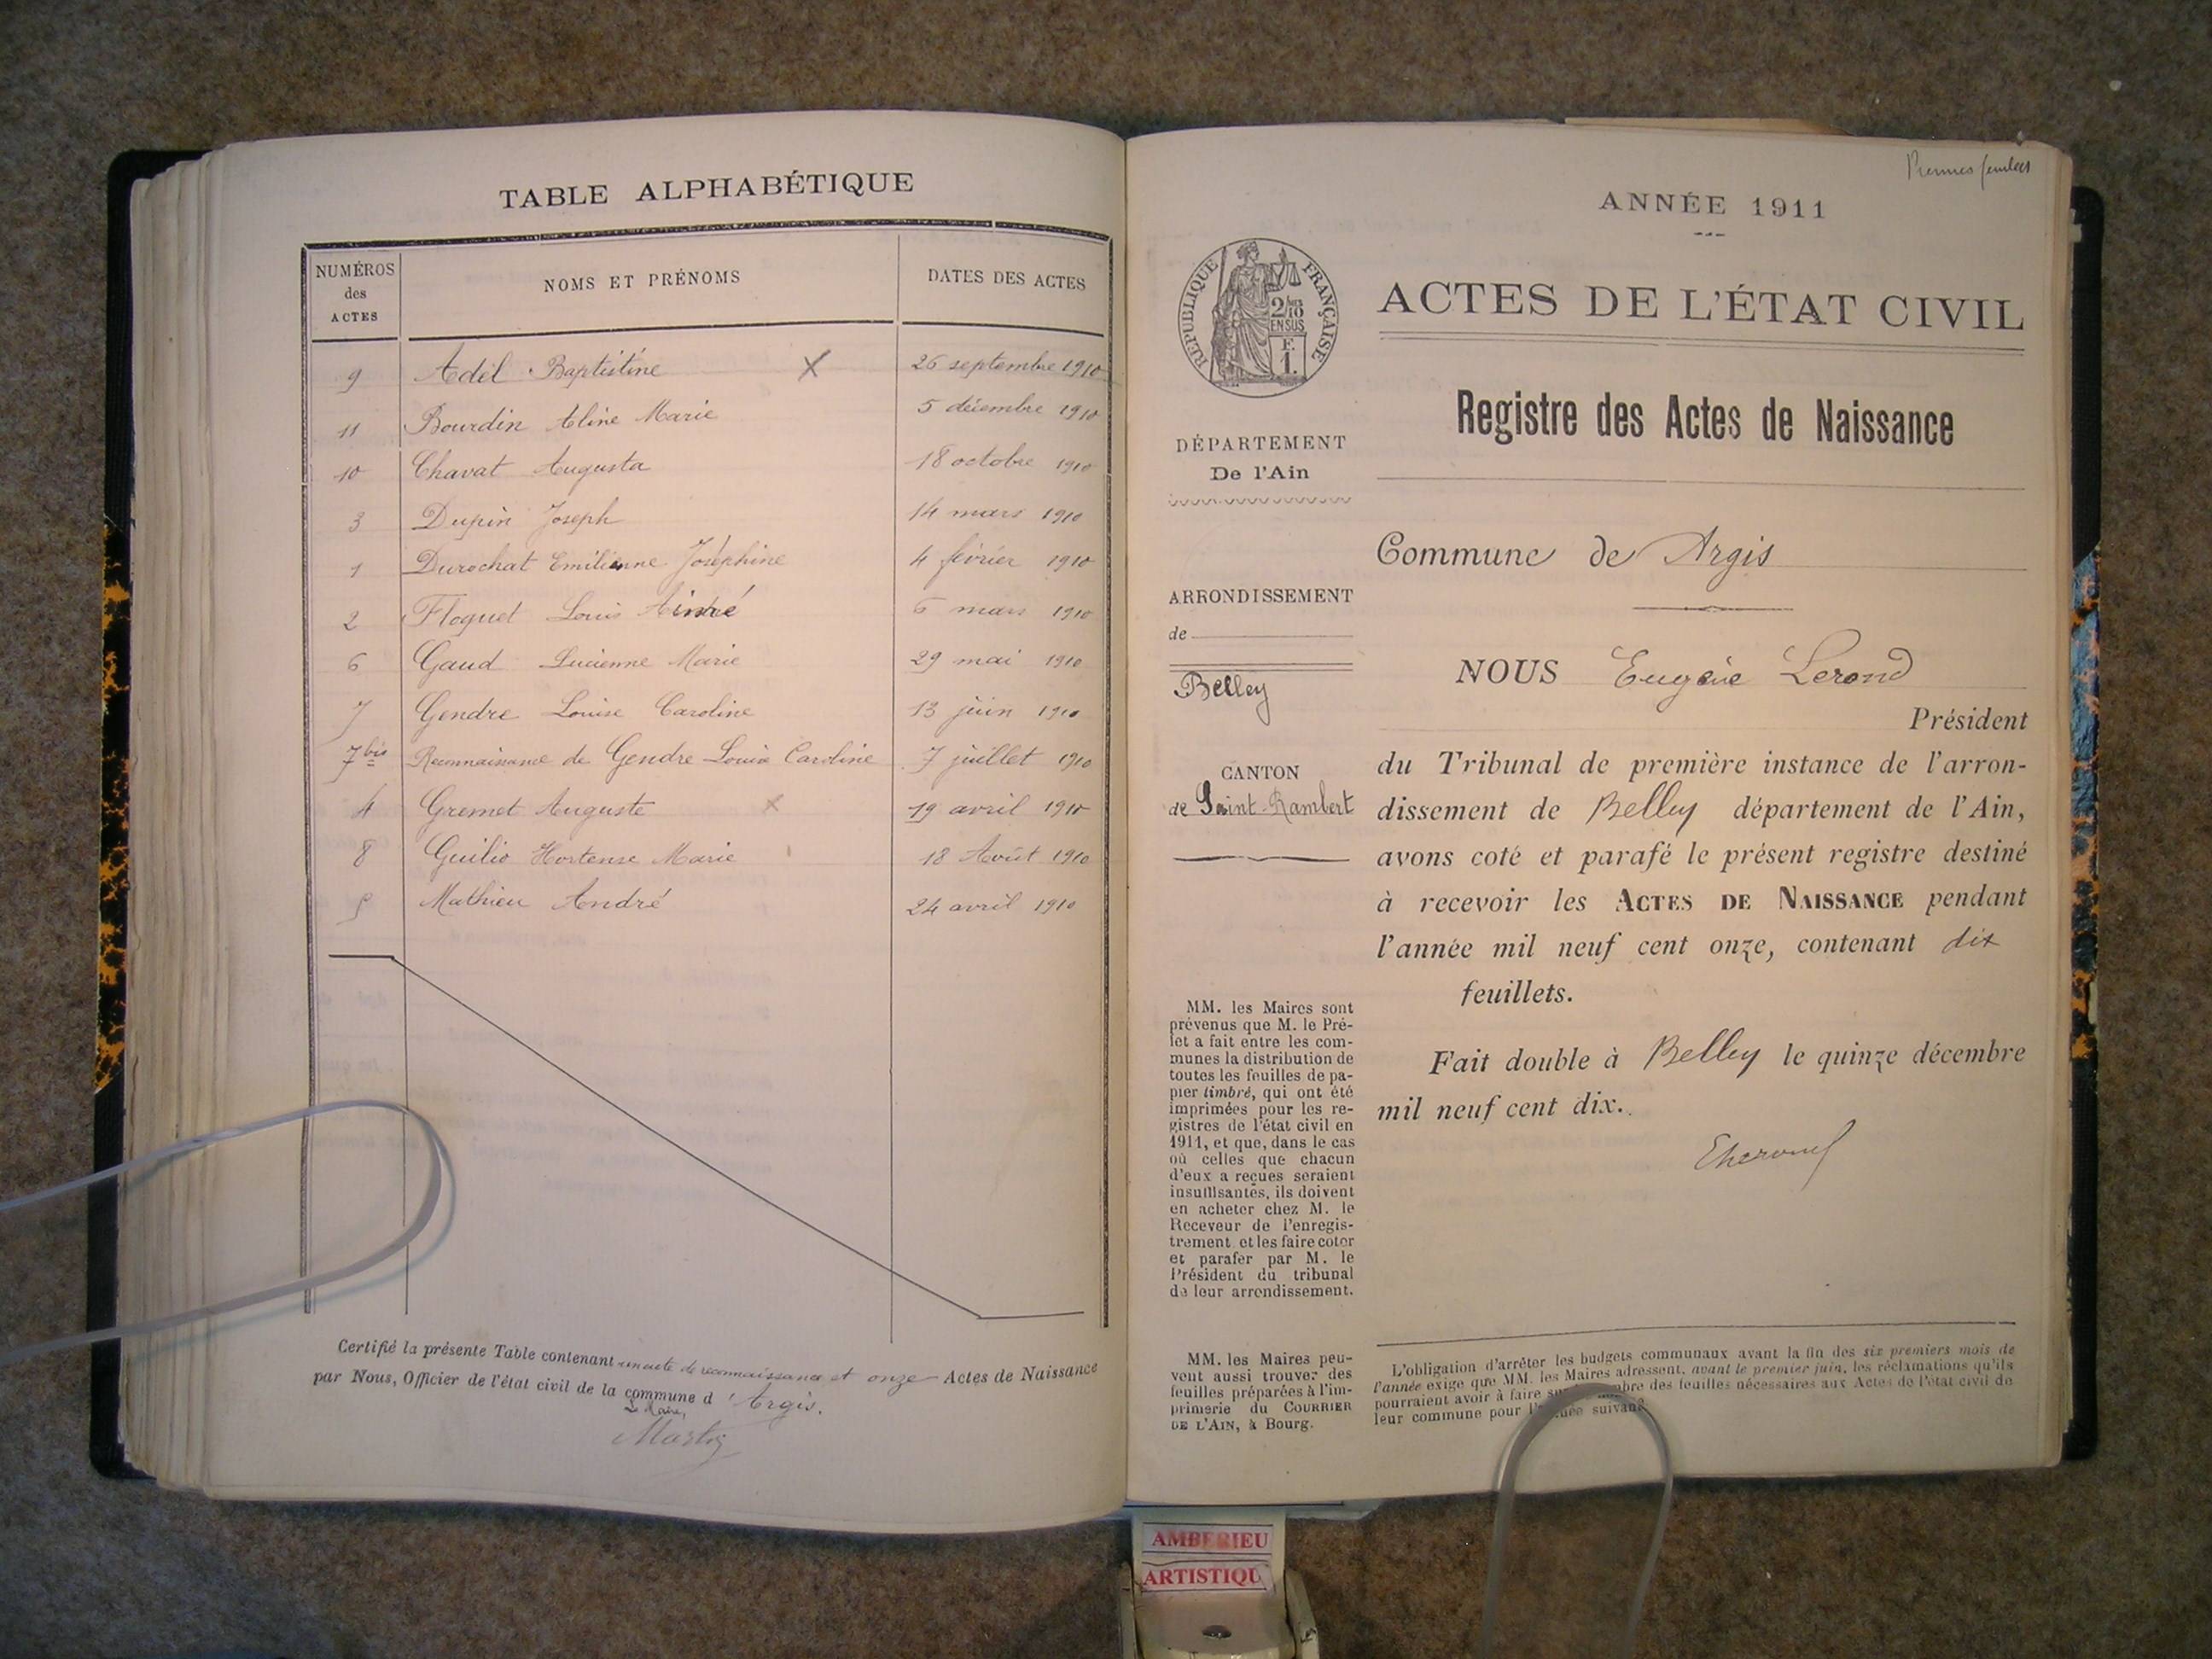 TABLE ALPHABÉTIQUE
NUMÉROS des ACTES NOMS ET PRÉNOMS DATES DES ACTES
9 Adél Baptistine X 26 septembre 1910
11 Bourdin Aline Marie 5 décembre 1910
10 Chavat Augusta 18 octobre 1910
3 Dupin Joseph 14 mars 1910
1 Durochat Emilienne Joséphine 4 février 1910
2 Floquet Louis Aimé 6 mars 1910
6 Gaud Lucienne Marie 29 mai 1910
7 Gendre Louise Caroline 13 juin 1910
7 bis Reconnaissance de Gendre Louise Caroline 7 juillet 1910
4 Gremet Auguste x 19 avril 1910
8 Guilio Hortense Marie 18 Août 1910
5 Mathieu André 24 avril 1910
Certifié la présente Table contenant un acte de reconnaissance et onze Actes de Naissance
par Nous, Officier de l'état civil de la commune d'Argis.
Le Maire,
Premier feuillet
ANNÉE 1911
RÉPUBLIQUE FRANÇAISE
2/10 EN SUS
F. 1.
ACTES DE L'ÉTAT CIVIL
Registre des Actes de Naissance
DÉPARTEMENT
De l'Ain
ARRONDISSEMENT
de
Belley
CANTON
de Saint-Rambert
Commune de Argis
NOUS Eugène Lerond
Président
du Tribunal de première instance de l'arron-
dissement de Belley département de l'Ain,
avons coté et parafé le présent registre destiné
à recevoir les ACTES DE NAISSANCE pendant
l'année mil neuf cent onze, contenant dix
feuillets.
Fait double à Belley le quinze décembre
mil neuf cent dix.
MM. les Maires sont
prévenus que M. le Pré-
fet a fait entre les com-
munes la distribution de
toutes les feuilles de pa-
pier timbré, qui ont été
imprimées pour les re-
gistres de l'état civil en
1911, et que, dans le cas
où celles que chacun
d'eux a reçues seraient
insuffisantes, ils doivent
en acheter chez M. le
Receveur de l'enregis-
trement et les faire coter
et parafer par M. le
Président du tribunal
de leur arrondissement.
MM. les Maires peu-
vent aussi trouver des
feuilles préparées à l'im-
primerie du COURRIER
DE L'AIN, à Bourg.
L'obligation d'arrêter les budgets communaux avant la fin des six premiers mois de
l'année exige que MM. les Maires adressent, avant le premier juin, les réclamations qu'ils
pourraient avoir à faire sur le nombre des feuilles nécessaires aux Actes de l'état civil de
leur commune pour l'année suivante
AMBERIEU
ARTISTIQU